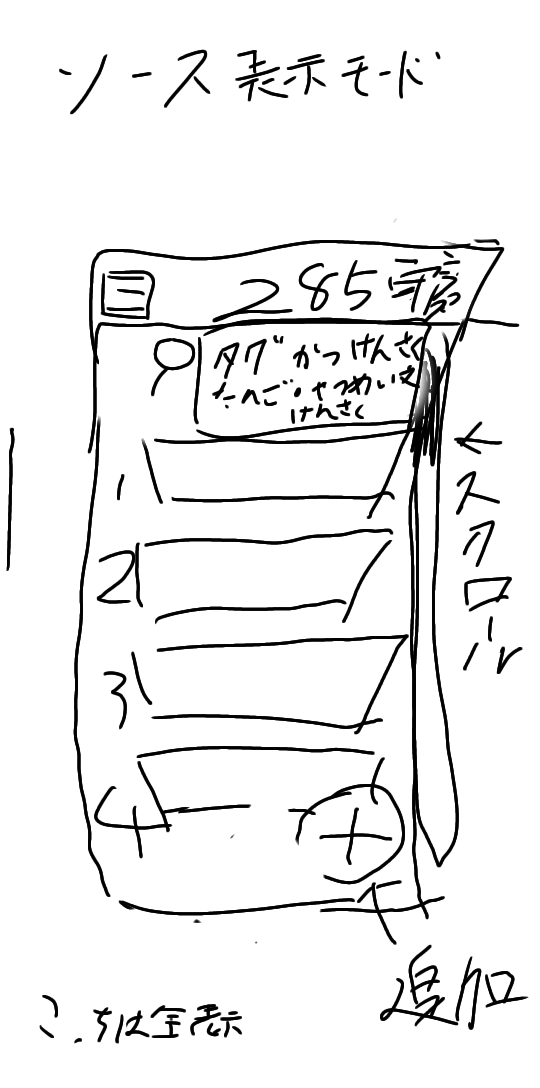 ソース表示モード
285
タグかつけんさく
たんご・せつめい文
けんさく
1
2
3
4
←スクロール
追加
こっちは全表示